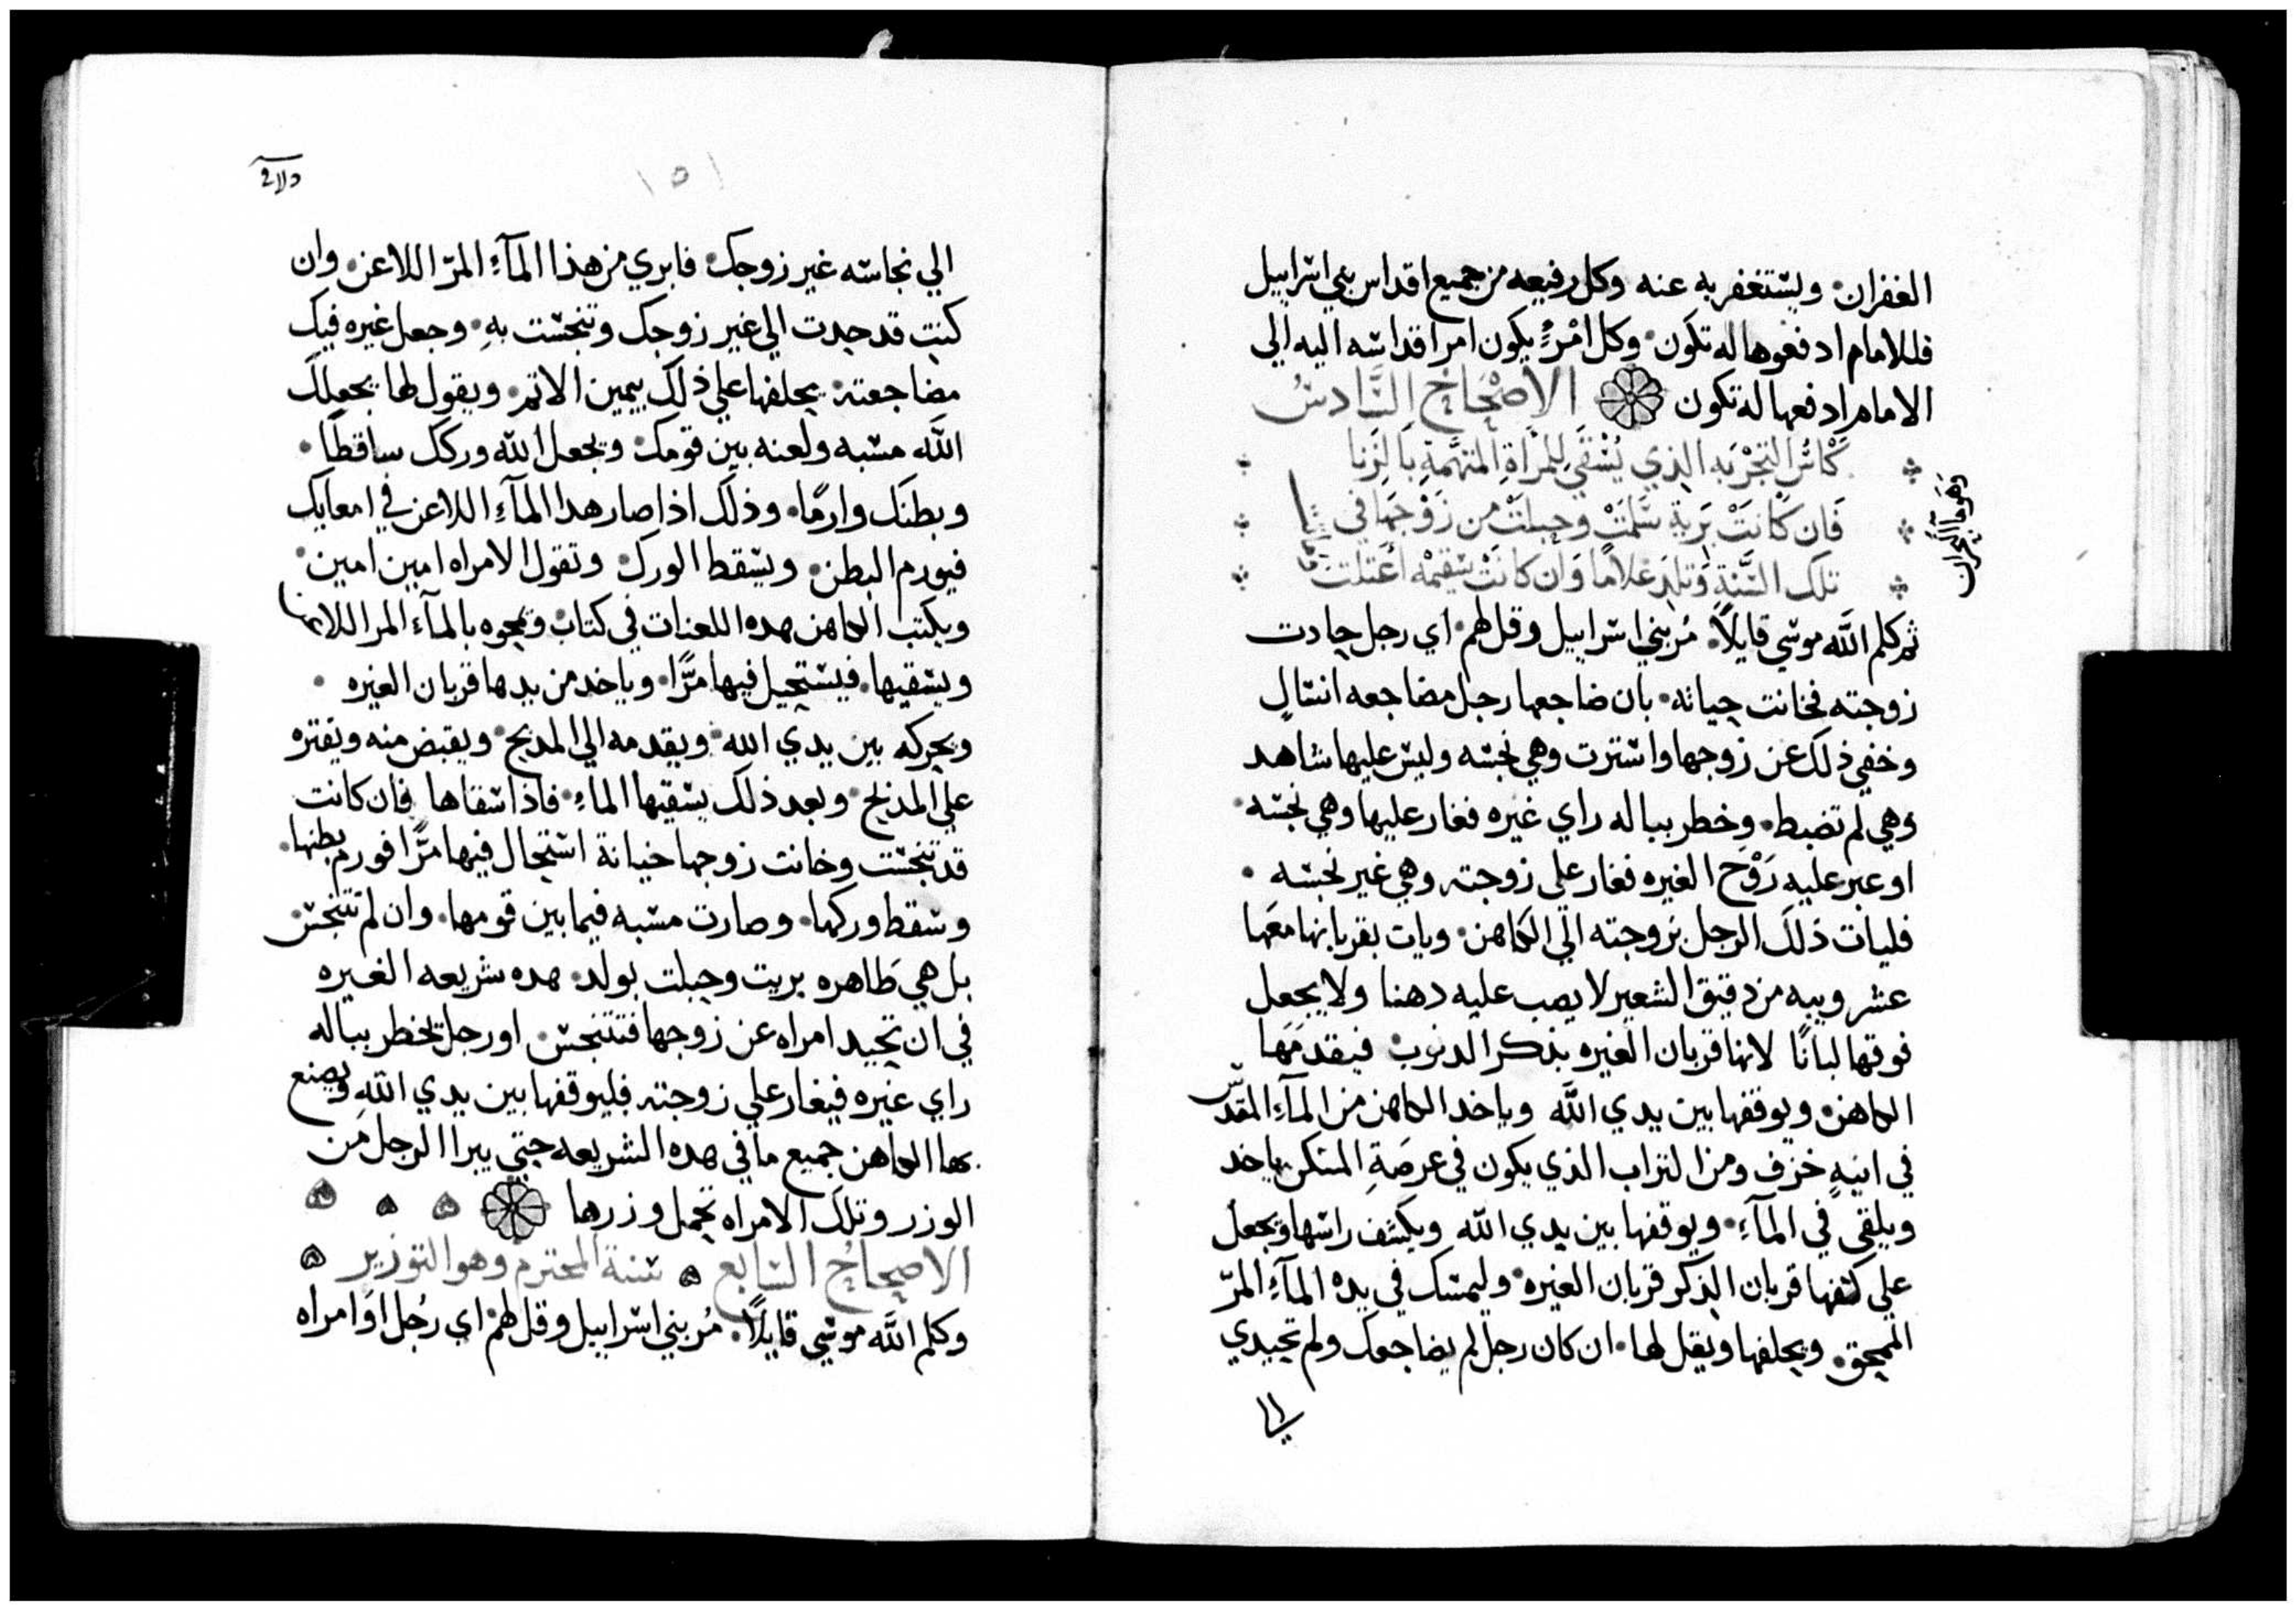 الغفران ويستغفر به عنه وكل رفيعه من جميع اقداس بني اسراييل
فللامام ادفعوها له تكون وكل امرءٍ يكون امر اقداسه اليه الي
الامام ادفعها له تكون الاصحاح السادس
كاس التجربه الذي يُسْقَي للمراةِ المتهَّمةِ بالزنا
فان كانتْ بَرية سَلمَتْ وحبلتْ من زَوْجهَا في
تلك السَّنةِ وَتلدَ غلامًا وَان كانتْ سقيمْه اعتلت
وَهَو ما البحران
ثم كلم اللَّه موسي قايلاً مُر بني اسراييل وقل لهم اي رجل حادت
زوجته فخانت خيانه بان ضاجعها رجل مضاجعه انسالٍ
وخفي ذلك عن زوجها واستترت وهي نجسه وليس عليها شاهد
وهي لم تضبط وخطر بباله راي غيره فغار عليها وهي نجسه
او عبر عليه رَوْح الغيره فغار علي زوجته وهي غير نجسه
فليات ذلك الرجل بزوجته الي الكاهن ويات بقربانها معَها
عشر ويبه من دقيق الشعير لا يصب عليه دهنا ولا يجعل
فوقها لبانًا لانها قربان الغيره بذكر الدنوب فيقدمَهَا
الكاهن ويوقفها بين يدي اللَّه وياخد الكاهن من المآءِ المقدّس
في انيهٍ خزف ومن التراب الذي يكون في عرصَةِ المسكن ياخد
ويلقي في المآءِ ويوقفها بين يدي اللَّه ويكشف راسها ويجعل
علي كفها قربان الذكر قربان الغيره وليمسك في يده المآءِ المرّ
الممحق ويحلفها ويقل لها ان كان رجل لم يضاجعك ولم تحيدي
الي
١٥١
الي نجاسه غير زوجك فابري من هذا المآءِ المرّ اللاعن وان
كنتِ قد حدت الي غير زوجك وتنجست بهِ وجعل غيره فيك
مضاجعته يحلفها علي ذلك بيمين الاثم ويقول لها يجعلك
اللَّه مسبه ولعنه بين قومك ويجعل اللَّه وركك ساقطًا
وبطنك وارمًا وذلك اذا صار هدا المآءِ اللاعن في امعايك
فيورم البطن ويسقط الورك وتقول الامراه امين امين
ويكتب الكاهن هده اللعنات في كتاب ويمحوه بالمآء المر اللاعن
ويسقيها فيستحيل فيها مرًّا وياخد من يدها قربان الغيره
ويحركه بين يدي الله ويقدمه الي المدبح ويقبض منه ويقتره
علي المدبح وبعد ذلك يسقيها الماءِ فاذا سقاها فان كانت
قد تنجست وخانت زوجها خيانة استحال فيها مرًّا فورم بطنها
وسقط وركها وصارت مسبه فيما بين قومها وان لم تتنجس
بل هي طاهره بريت وحبلت بولد هده شريعه الغيره
في ان تحيد امراه عن زوجها فتتنجس او رجل يخطر بباله
راي غيره فيغار علي زوجته فليوقفها بين يدي اللَّه ويصنع
بها الكاهن جميع ما في هده الشريعه حتي يبرا الرجل من
الوزر وتلك الامراه تحمل وزرها
الاصحاح السابع سنة المحترم وهو التوزير
وكلم اللَّه موسي قايلاً مُر بني اسراييل وقل لهم اي رجُل اوَ امراه